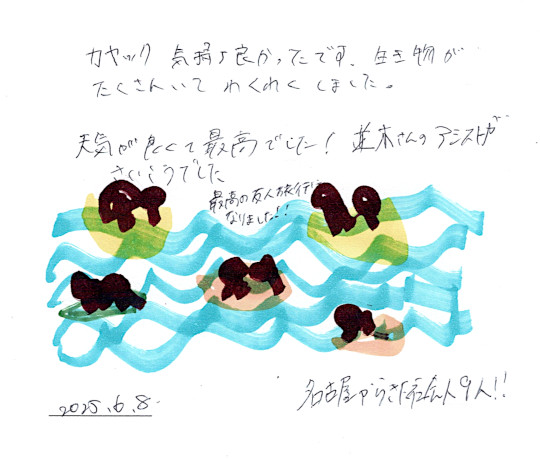 カヤック 気持ち良かったです。生き物が
たくさんいて わくわく しました。
天気が良くて最高でした! 並木さんのアシストが
さいこうでした
最高の友人旅行に
なりました!!
名古屋からきた社会人9人!!
2025.6.8.